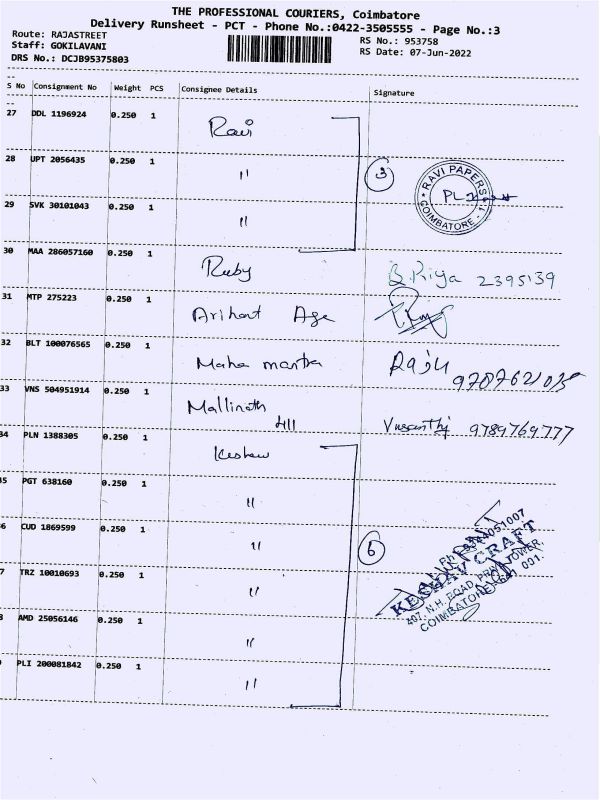 THE PROFESSIONAL COURIERS, Coimbatore
Delivery Runsheet - PCT - Phone No.:0422-3505555 - Page No.:3
Route: RAJASTREET
RS No.: 953758
Staff: GOKILAVANI
RS Date: 07-Jun-2022
DRS No.: DCJB95375803
S No Consignment No Weight PCS Consignee Details Signature
27 DDL 1196924 0.250 1 Ravi
28 UPT 2056435 0.250 1 "
3
RAVI PAPERS
COIMBATORE - 1
29 SVK 30101043 0.250 1 "
30 MAA 286057160 0.250 1 Ruby B.Priya 2395139
31 MTP 275223 0.250 1 Arihant Age
32 BLT 100076565 0.250 1 Maha mantra Raju
33 VNS 504951914 0.250 1 Mallinath 411 Vasanthi 9789769777
34 PLN 1388305 0.250 1 Keshav
35 PGT 638160 0.250 1 "
6 CUD 1869599 0.250 1 "
6
KESHAV CRAFT
COIMBATORE - 641 001.
7 TRZ 10010693 0.250 1 "
8 AMD 25056146 0.250 1 "
9 PLI 200081842 0.250 1 "